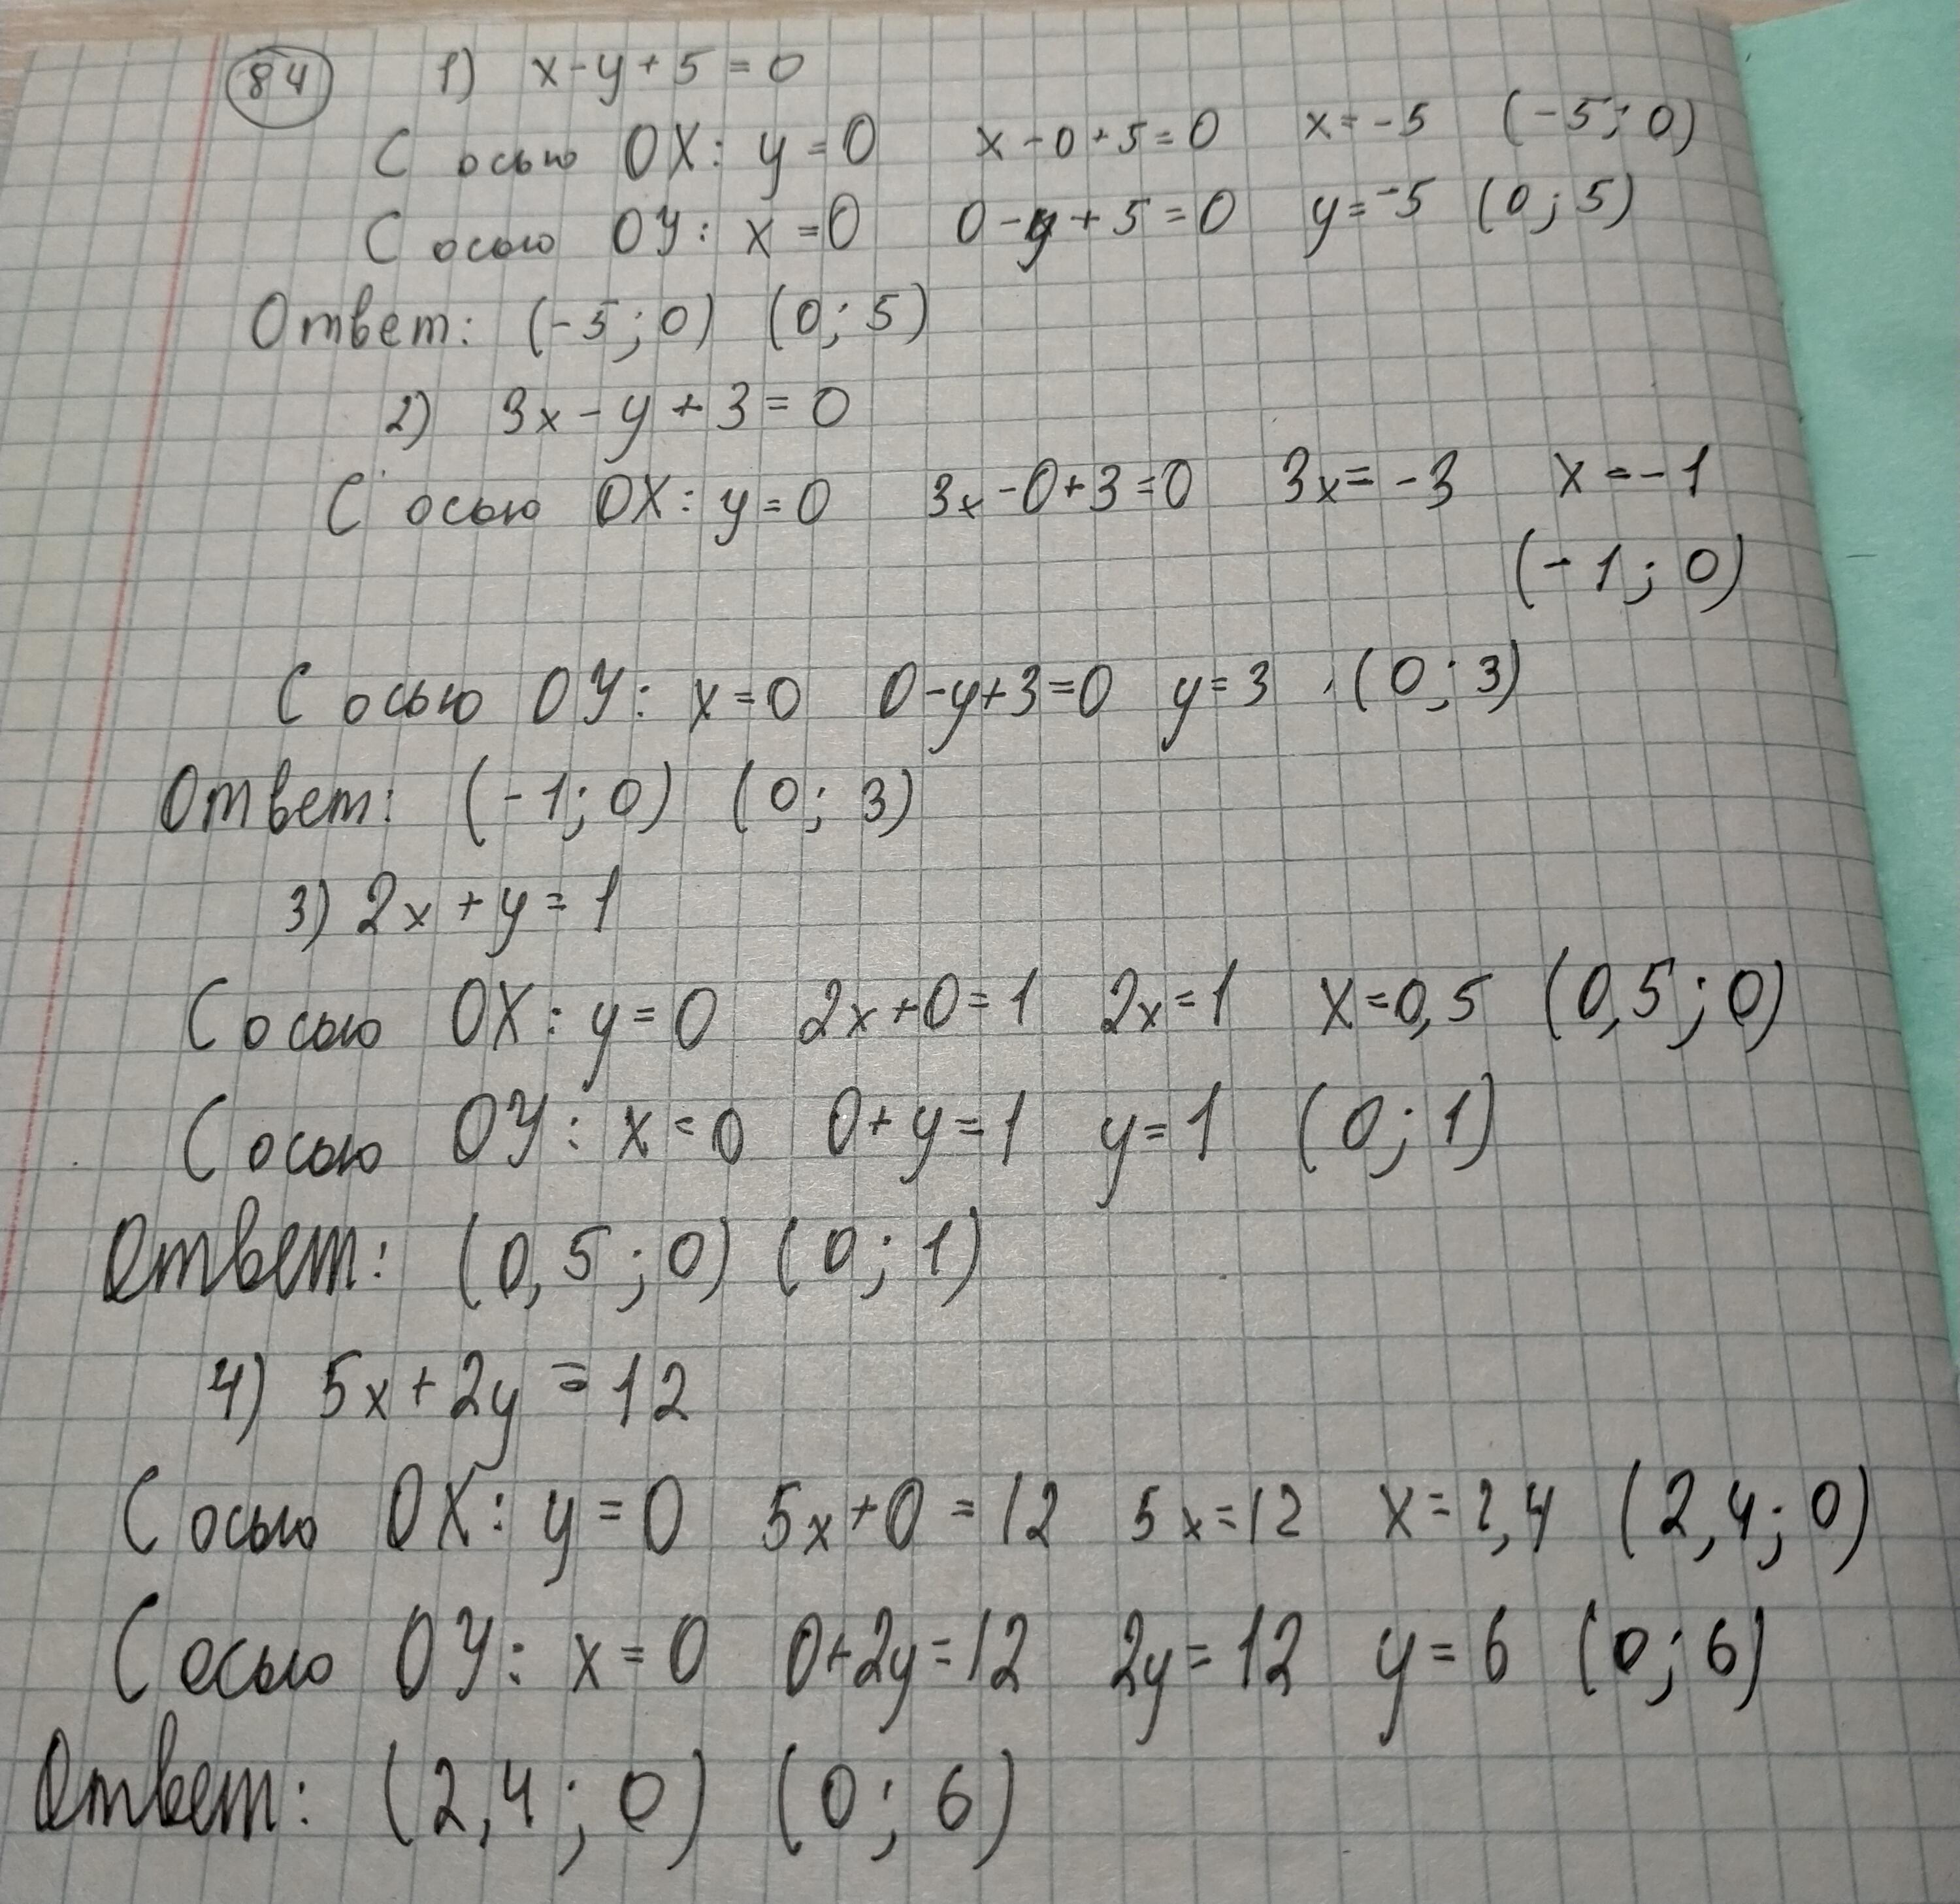 84 1) x-y+5=0
С осью OX: y=0 x-0+5=0 x=-5 (-5;0)
С осью OY: x=0 0-y+5=0 y=-5 (0;5)
Ответ: (-5;0) (0;5)
2) 3x-y+3=0
С осью OX: y=0 3x-0+3=0 3x=-3 x=-1
(-1;0)
С осью OY: x=0 0-y+3=0 y=3 (0;3)
Ответ: (-1;0) (0;3)
3) 2x+y=1
С осью OX: y=0 2x+0=1 2x=1 x=0,5 (0,5;0)
С осью OY: x=0 0+y=1 y=1 (0;1)
Ответ: (0,5;0) (0;1)
4) 5x+2y=12
С осью OX: y=0 5x+0=12 5x=12 x=2,4 (2,4;0)
С осью OY: x=0 0+2y=12 2y=12 y=6 (0;6)
Ответ: (2,4;0) (0;6)